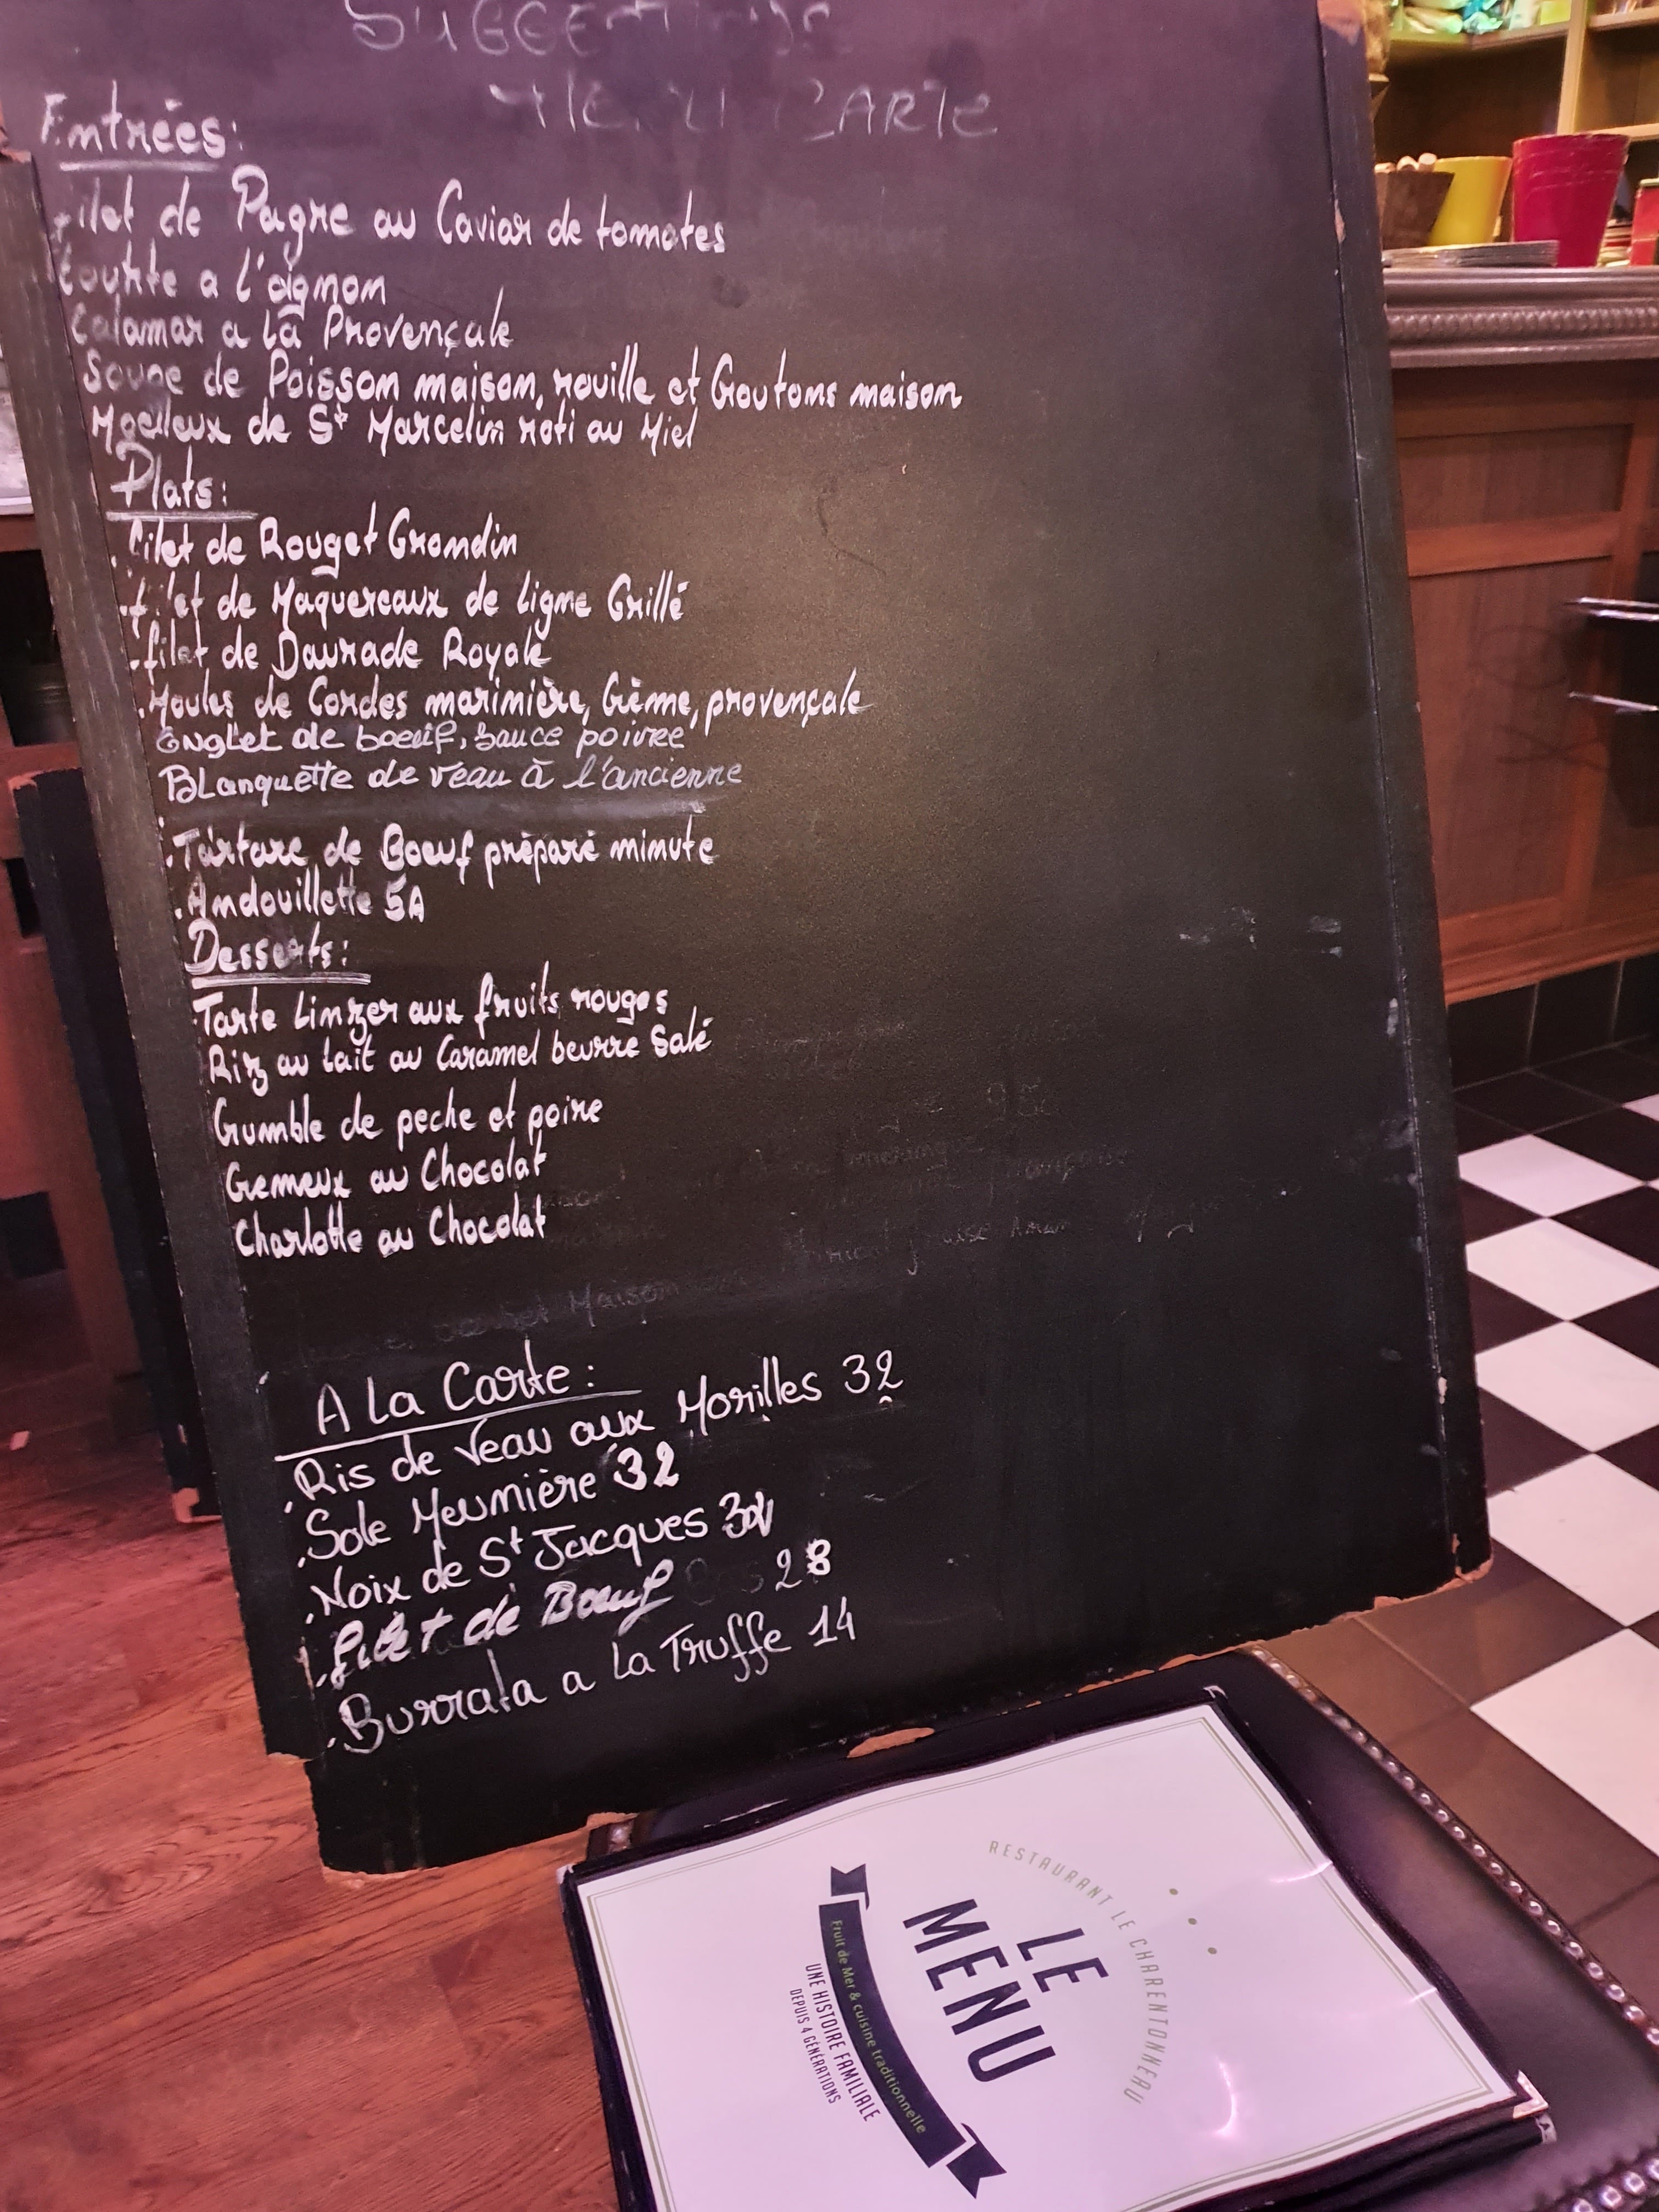 SUGGESTIONS
MENU CARTE
Entrées:
filet de Pagre au Caviar de tomates
tourte a l'oignon
Calamar a La Provençale
Soupe de Poisson maison, rouille et Croutons maison
Moelleux de St Marcelin roti au Miel
Plats:
.filet de Rouget Grondin
.filet de Maquereaux de Ligne Grillé
.filet de Daurade Royale
.Moules de Cordes marinière, Crème, provençale
Onglet de boeuf, sauce poivre
Blanquette de veau à l'ancienne
.Tartare de Boeuf préparé minute
.Andouillette 5A
Desserts:
Tarte Linzer aux fruits rouges
Riz au lait au Caramel beurre Salé
Crumble de peche et poire
Cremeux au Chocolat
Charlotte au Chocolat
Maison
A La Carte:
.Ris de Veau aux Morilles 32
.Sole Meunière 32
.Noix de St Jacques
.filet de Boeuf 28
.Burrata a La Truffe 14
RESTAURANT LE CHARENTONNEAU
LE
MENU
Fruit de Mer & cuisine traditionnelle
UNE HISTOIRE FAMILIALE
DEPUIS 4 GÉNÉRATIONS